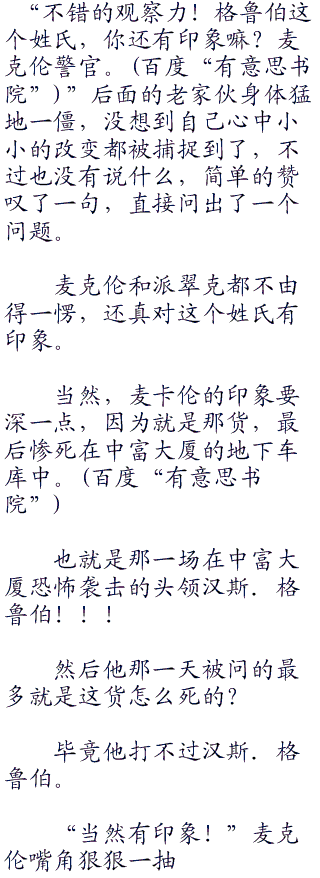 “不错的观察力！格鲁伯这
个姓氏，你还有印象嘛？麦
克伦警官。(百度“有意思书
院”)”后面的老家伙身体猛
地一僵，没想到自己心中小
小的改变都被捕捉到了，不
过也没有说什么，简单的赞
叹了一句，直接问出了一个
问题。
麦克伦和派翠克都不由
得一愣，还真对这个姓氏有
印象。
当然，麦卡伦的印象要
深一点，因为就是那货，最
后惨死在中富大厦的地下车
库中。(百度“有意思书
院”)
也就是那一场在中富大
厦恐怖袭击的头领汉斯．格
鲁伯！！！
然后他那一天被问的最
多就是这货怎么死的？
毕竟他打不过汉斯．格
鲁伯。
“当然有印象！”麦克
伦嘴角狠狠一抽